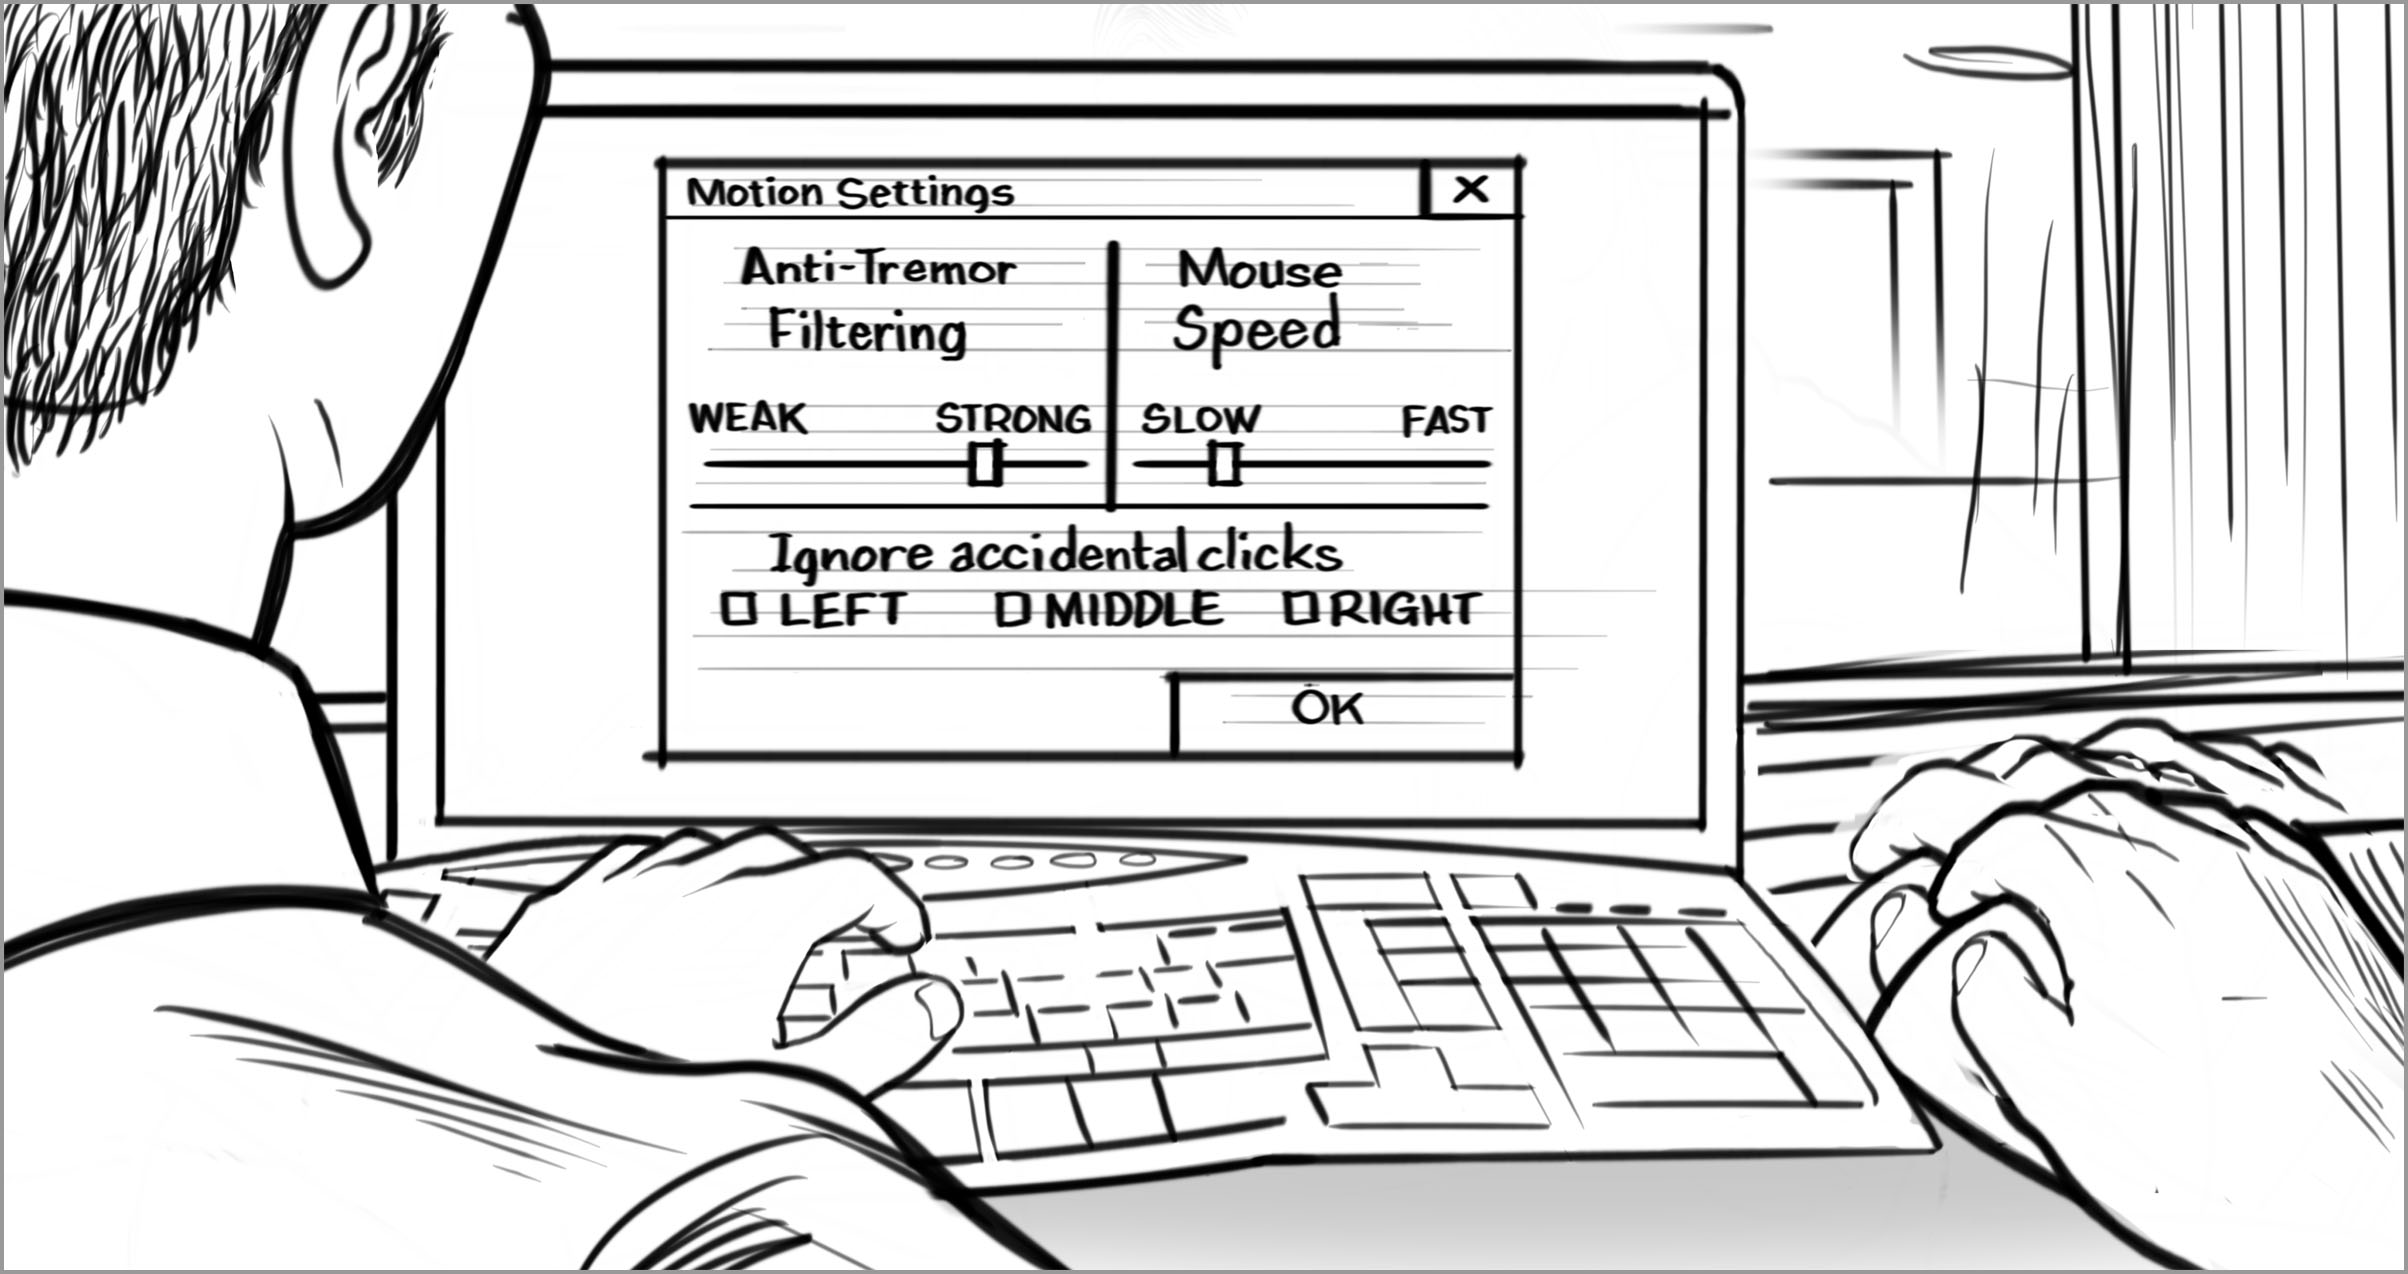 Motion Settings X
Anti-Tremor
Filtering
WEAK STRONG
Mouse
Speed
SLOW FAST
Ignore accidental clicks
LEFT MIDDLE RIGHT
OK